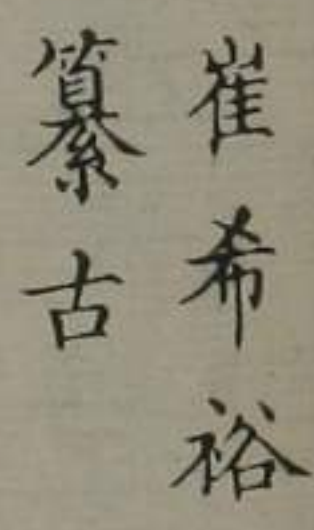 崔希裕
纂古